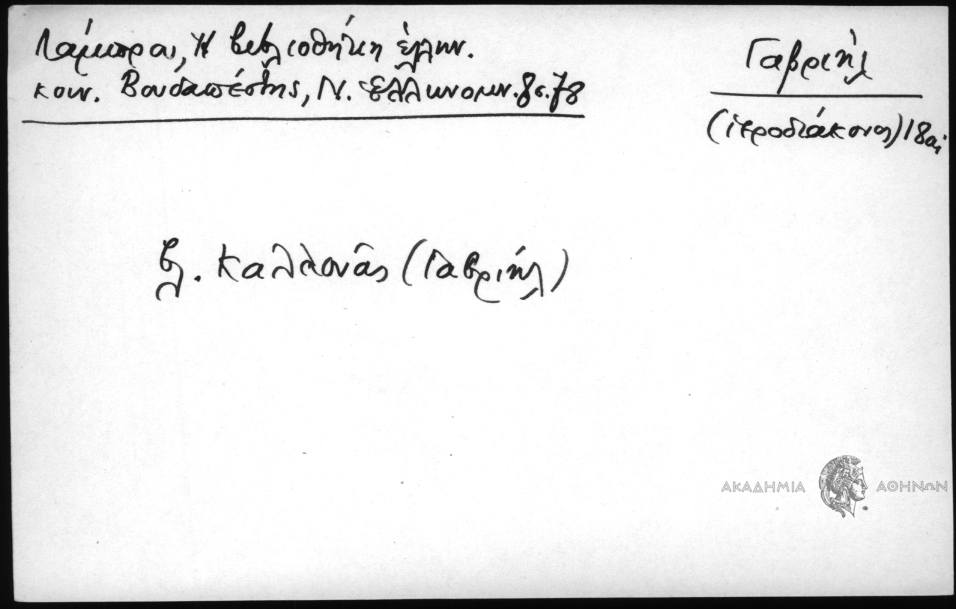 Λάμπρου, Ἡ βιβλιοθήκη ἑλλην.
κοιν. Βουδαπέστης, Ν. Ἑλληνομν. 8ς. 78
Γαβριήλ
(ἱεροδιάκονος) 18 αἰ
βλ. Καλλονᾶς (Γαβριήλ)
ΑΚΑΔΗΜΙΑ ΑΘΗΝΩΝ